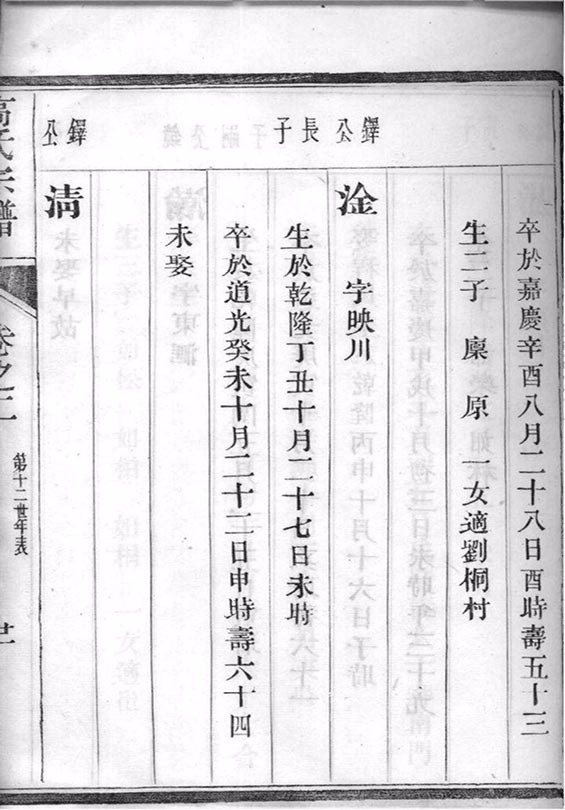 卒於嘉慶辛酉八月二十八日酉時壽五十三
生二子 㢘 原 一女適劉桐村
鐸公長子
淦 字映川
生於乾隆丁丑十月二十七日未時
卒於道光癸未十月二十二日申時壽六十四
未娶
鐸公
清
高氏宗譜
卷之二
第十二世年表